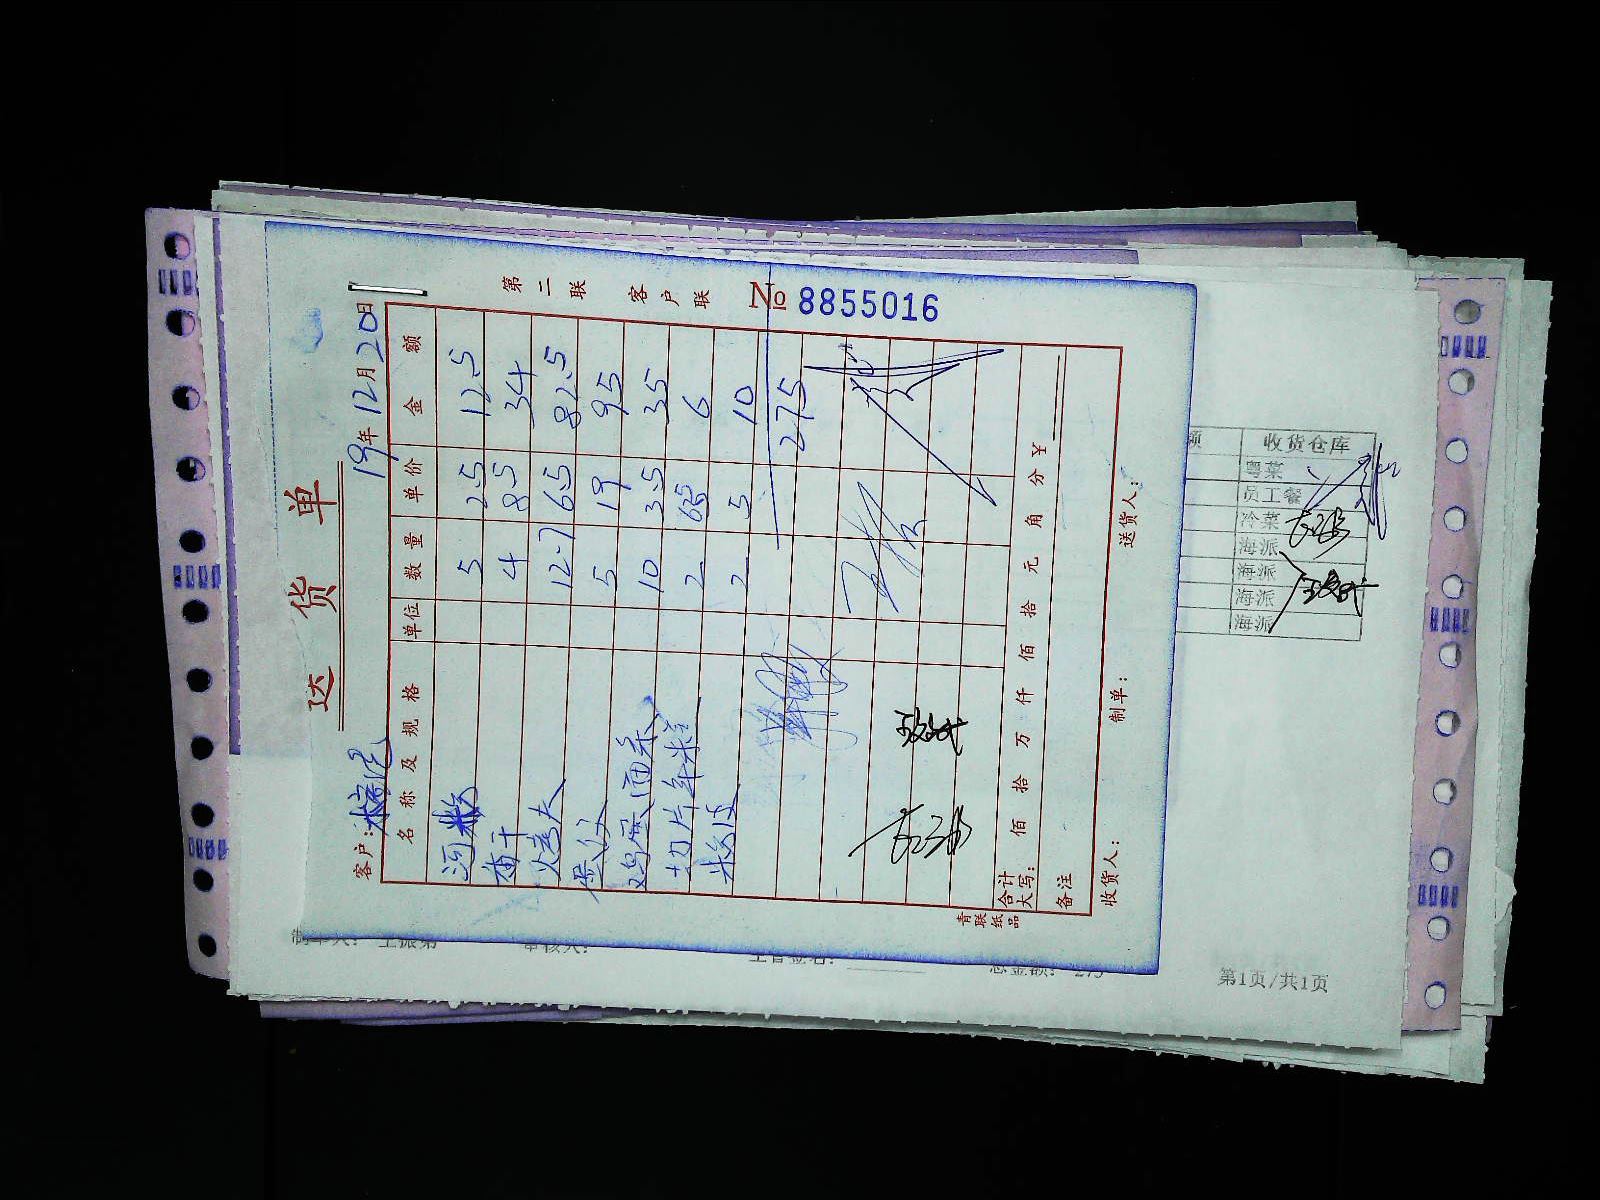 送 货 单
第二联 客户联
№ 8855016
客户: 19年12月20日
名称及规格 单位 数量 单价 金额
河粉 5 2.5 12.5
4 8.5 34
烤夫 12.7 6.5 82.5
5 19 95
鸡蛋面 10 3.5 35
切片年糕 2 6
粉皮 2 5 10
275
合计大写: 佰 拾 万 仟 佰 拾 元 角 分 ¥
备注
收货人: 制单: 送货人:
青联纸品
额 收货仓库
粤菜
员工餐
冷菜
海派
海派
海派
海派
第1页/共1页